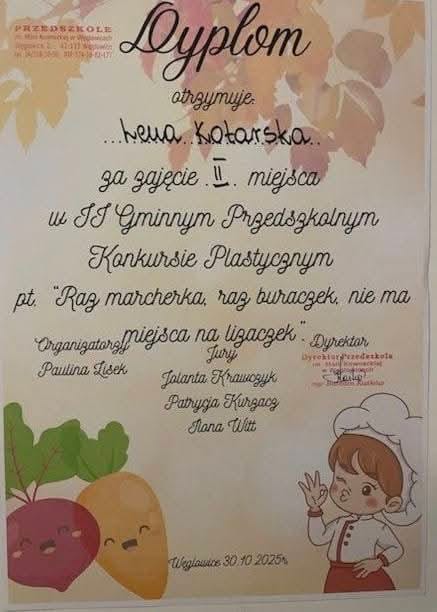 PRZEDSZKOLE
im. Marii Kownackiej w Węglowicach
Dyplom
otrzymuje:
Lena Kotarska
za zajęcie II miejsca
w II Gminnym Przedszkolnym
Konkursie Plastycznym
pt. "Raz marcherka, raz buraczek, nie ma
miejsca na lizaczek".
Organizatorzy
Paulina Lisek
Jury
Jolanta Krawczyk
Patrycja Kurzacz
Ilona Witt
Dyrektor
Dyrektor Przedszkola
im. Marii Kownackiej
w Węglowicach
Węglowice 30.10.2025r.